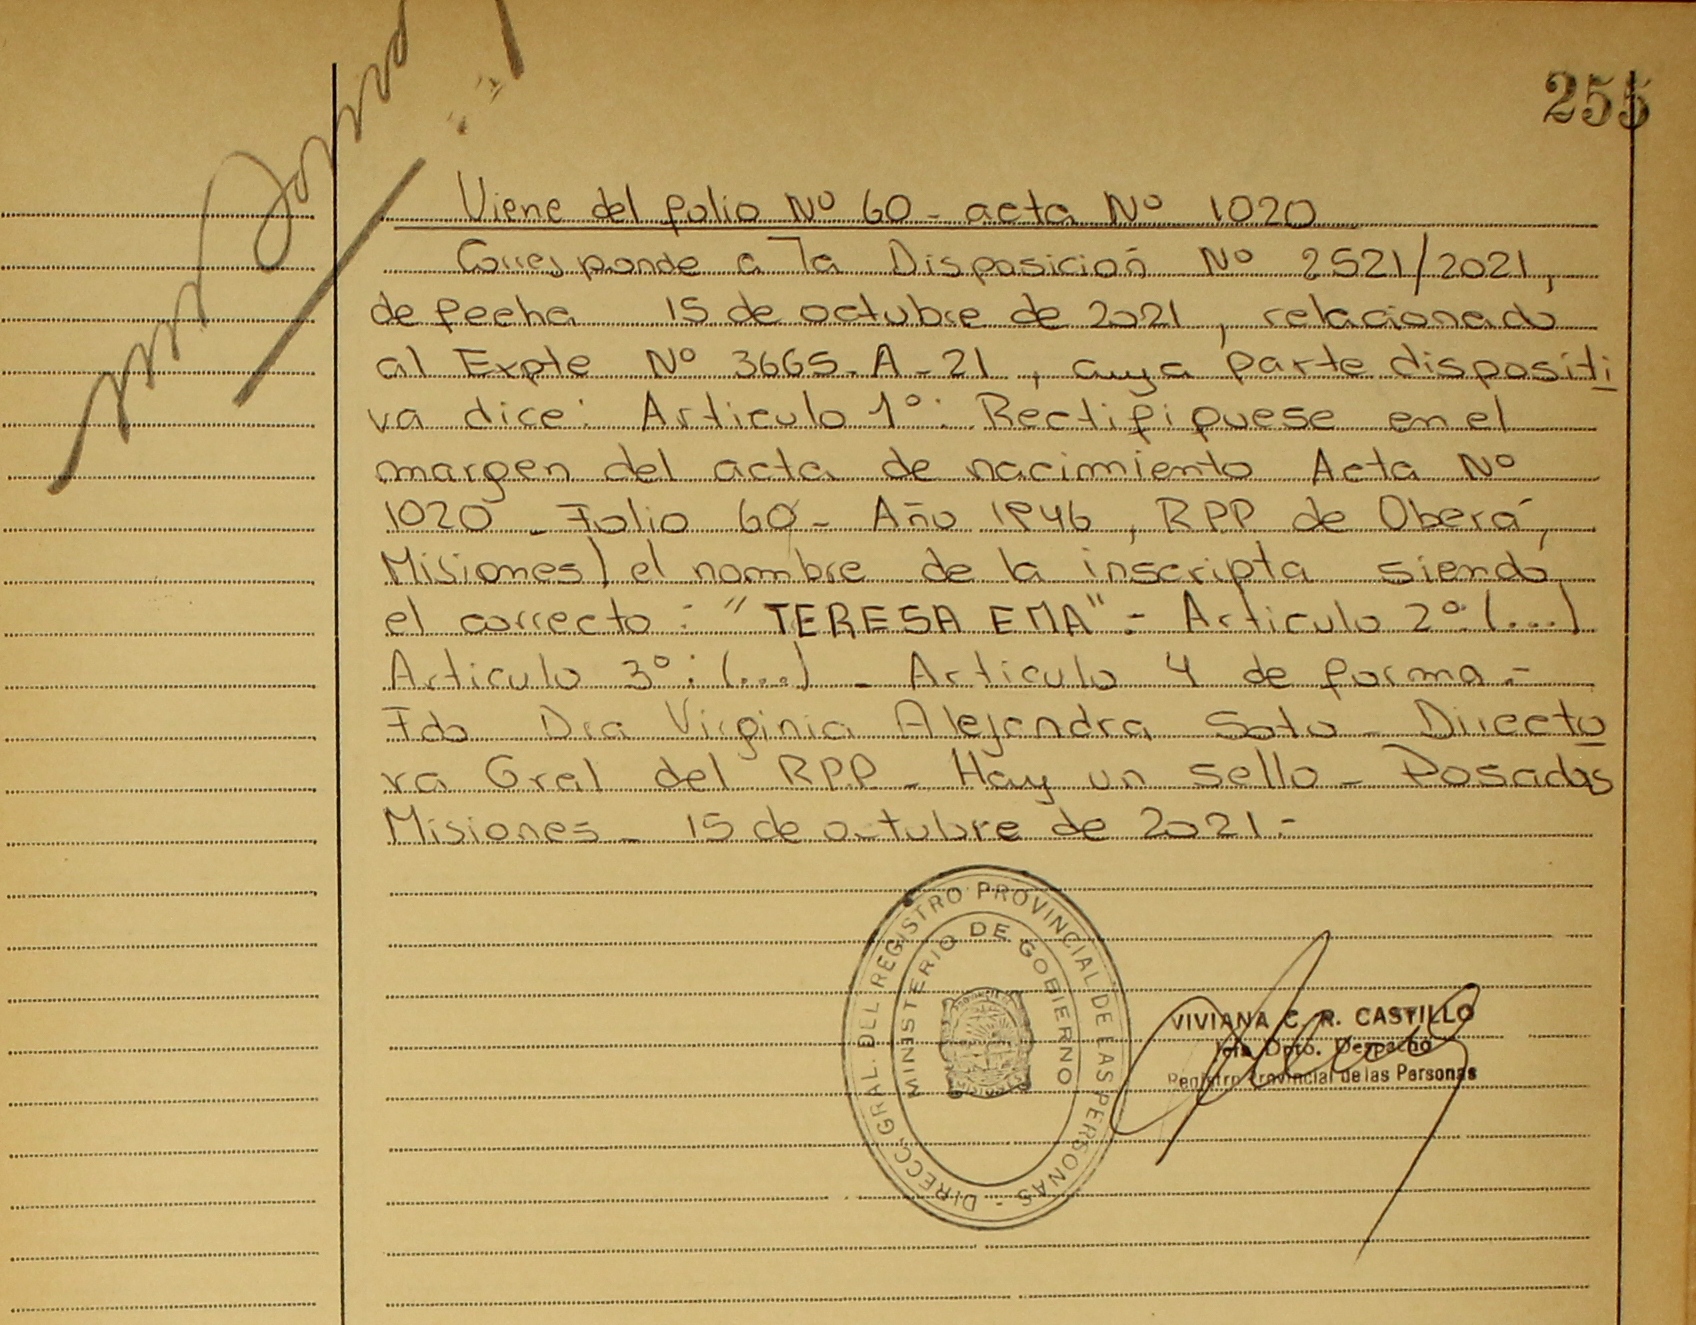 255
Viene del folio Nº 60 - acta Nº 1020
Corresponde a la Disposición Nº 2521/2021,
de fecha 15 de octubre de 2021, relacionado
al Expte Nº 3665-A-21, cuya parte dispositi
va dice: Articulo 1º: Rectifiquese en el
margen del acta de nacimiento Acta Nº
1020 - Folio 60 - Año 1946, RPP de Oberá,
Misiones) el nombre de la inscripta siendo
el correcto: "TERESA EMA".- Articulo 2º: (...)
Articulo 3º: (...) - Articulo 4 de forma.-
Fdo Dra Virginia Alejandra Soto - Directo
ra Gral del RPP - Hay un sello - Posadas
Misiones - 15 de octubre de 2021.-
DIRECC. GRAL. DEL REGISTRO PROVINCIAL DE LAS PERSONAS -
MINISTERIO DE GOBIERNO
VIVIANA C. R. CASTILLO
Jefa Dpto. Despacho
Registro Provincial de las Personas